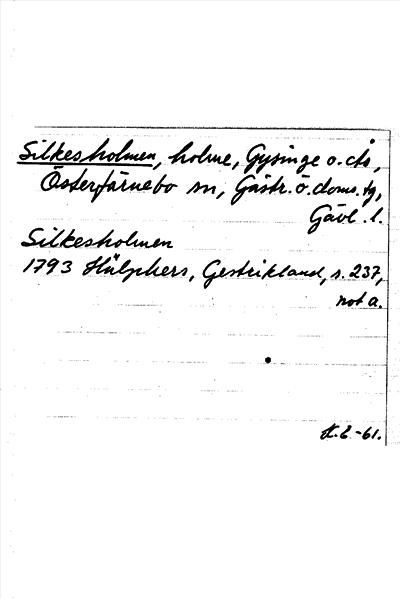 Silkesholmen, holme, Gysinge o. cts,
Österfärnebo sn, Gästr. ö. doms. tg,
Gävl. l.
Silkesholmen
1793 Hülphers, Gestrikland, s. 237,
not a.
-61.